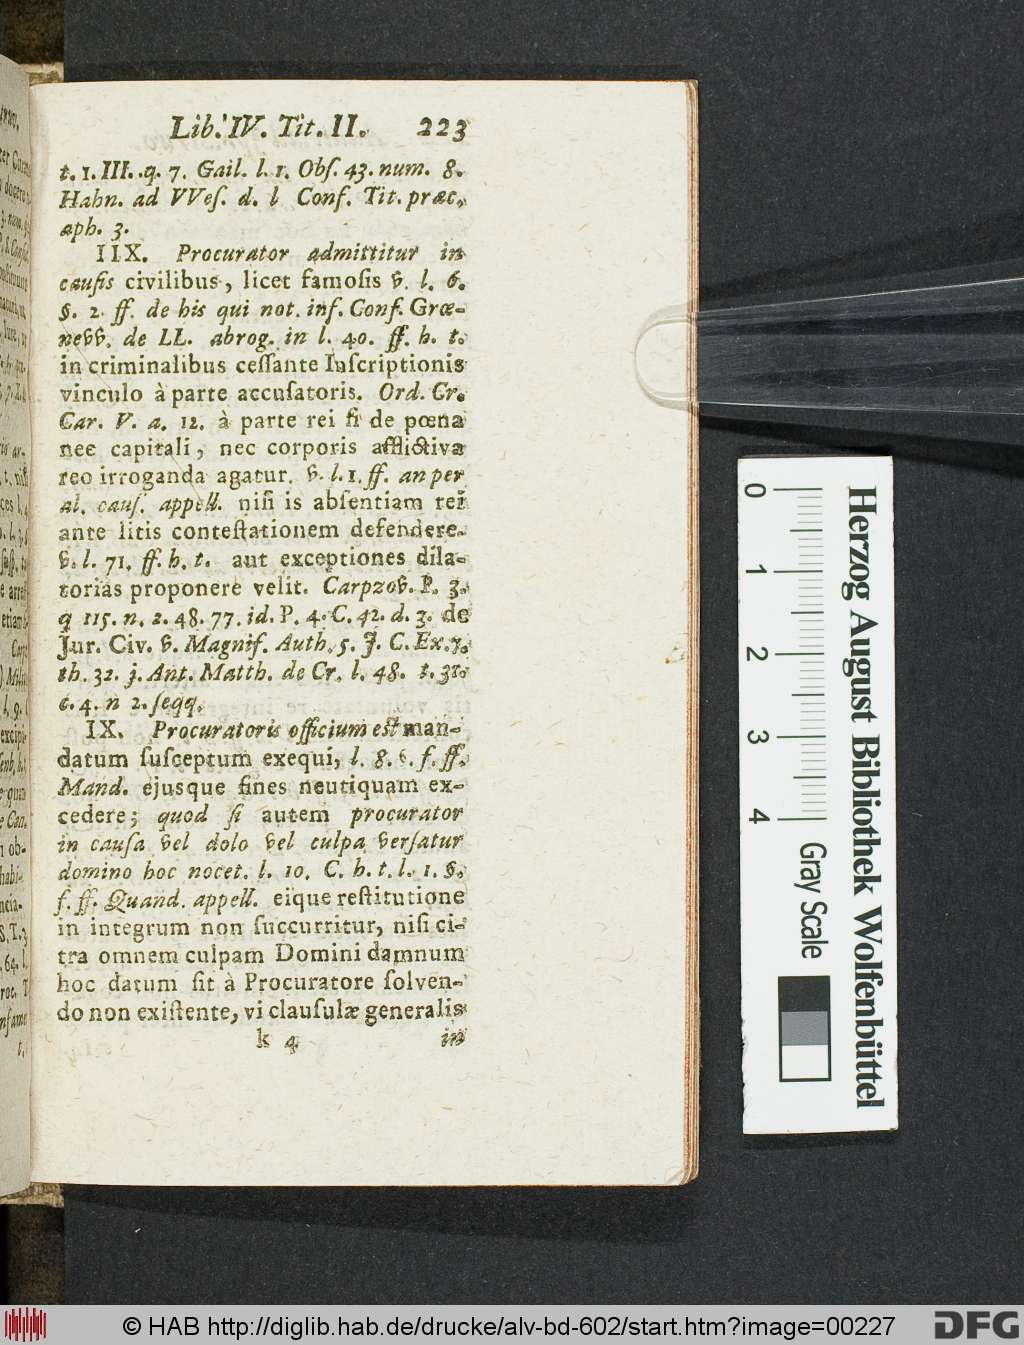 Lib. IV. Tit. II. 223
t. 1. III. q. 7. Gail. l. 1. Obſ. 43. num. 8.
Hahn. ad VVeſ. d. l Conf. Tit. præc.
aph. 3.
IIX. Procurator admittitur in
cauſis civilibus, licet famoſis v. l. 6.
§. 2. ff. de his qui not. inf. Conf. Grœ-
nevv. de LL. abrog. in l. 40. ff. h. t.
in criminalibus ceſſante Inſcriptionis
vinculo à parte accuſatoris. Ord. Cr.
Car. V. a. 12. à parte rei ſi de pœna
nec capitali, nec corporis afflictiva
reo irroganda agatur. v. l. 1. ff. an per
al. cauſ. appell. niſi is abſentiam rei
ante litis conteſtationem defendere.
v. l. 71. ff. h. t. aut exceptiones dila-
torias proponere velit. Carpzov. P. 3.
q 115. n. 2. 48. 77. id. P. 4. C. 42. d. 3. de
Jur. Civ. v. Magnif. Auth. 5. J. C. Ex. 7.
th. 32. j. Ant. Matth. de Cr. l. 48. t.
c. 4. n 2. ſeqq.
IX. Procuratoris officium eſt man-
datum ſuſceptum exequi, l. 8. f. ff.
Mand. ejusque fines neutiquam ex-
cedere; quod ſi autem procurator
in cauſa vel dolo vel culpa verſatur
domino hoc nocet. l. 10. C. h. t. l. 1. §.
f. ff. Quand. appell. eique reſtitutione
in integrum non ſuccurritur, niſi ci-
tra omnem culpam Domini damnum
hoc datum ſit à Procuratore ſolven-
do non exiſtente, vi clauſulæ generalis
k 4 in
0 1 2 3 4
Gray Scale
Herzog August Bibliothek Wolfenbüttel
© HAB http://diglib.hab.de/drucke/alv-bd-602/start.htm?image=00227
DFG